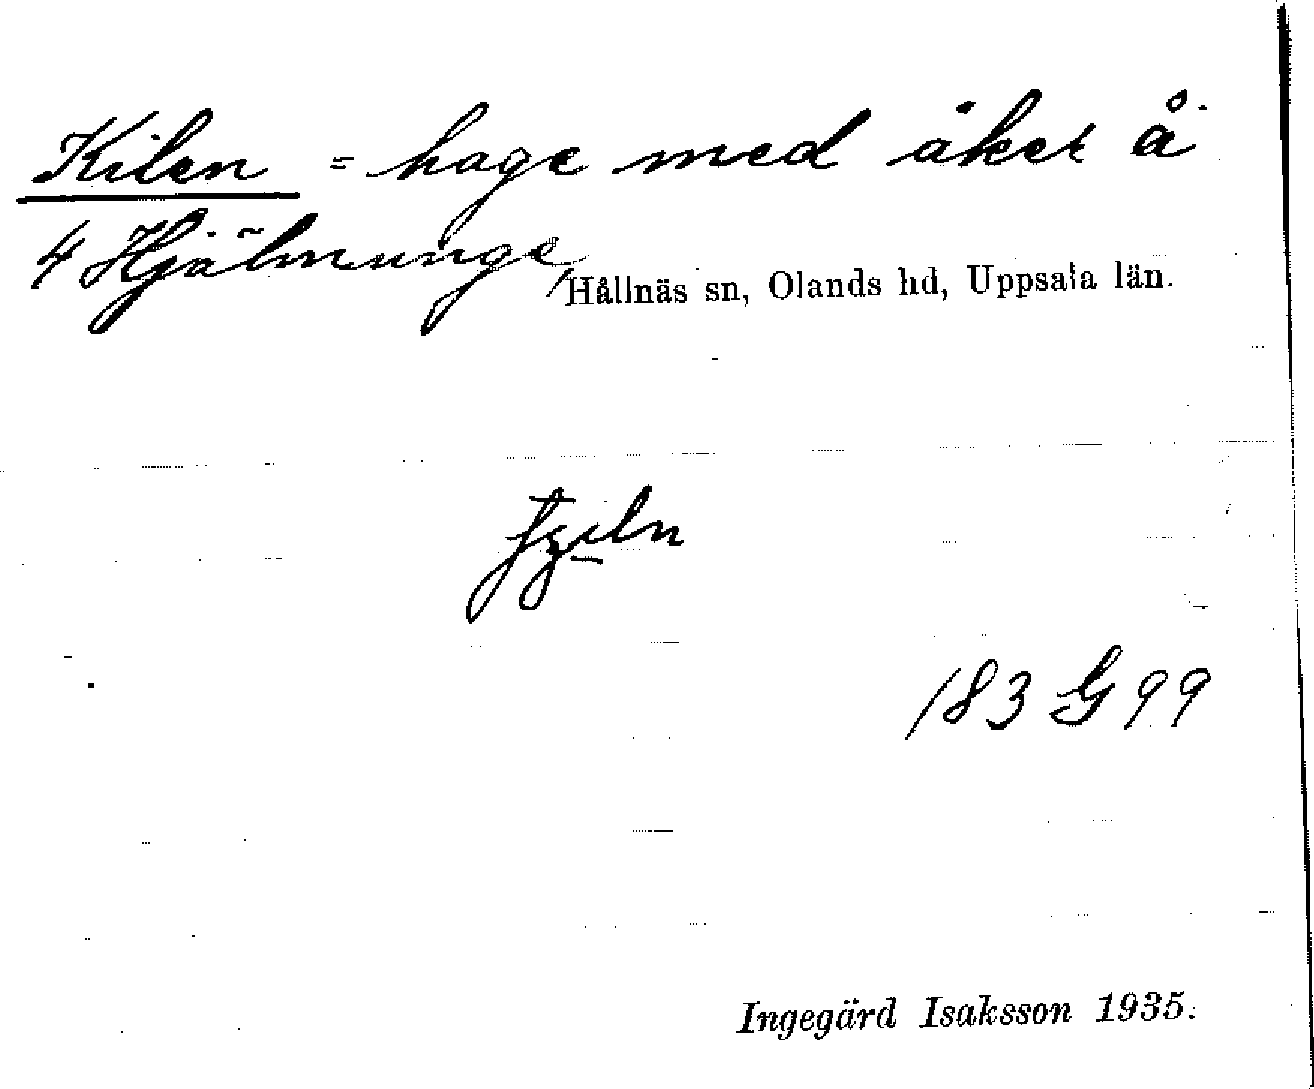 Kilen = hage med åker å
4 Hjälmunge, Hållnäs sn, Olands hd, Uppsala län.
183 G 99
Ingegärd Isaksson 1935.